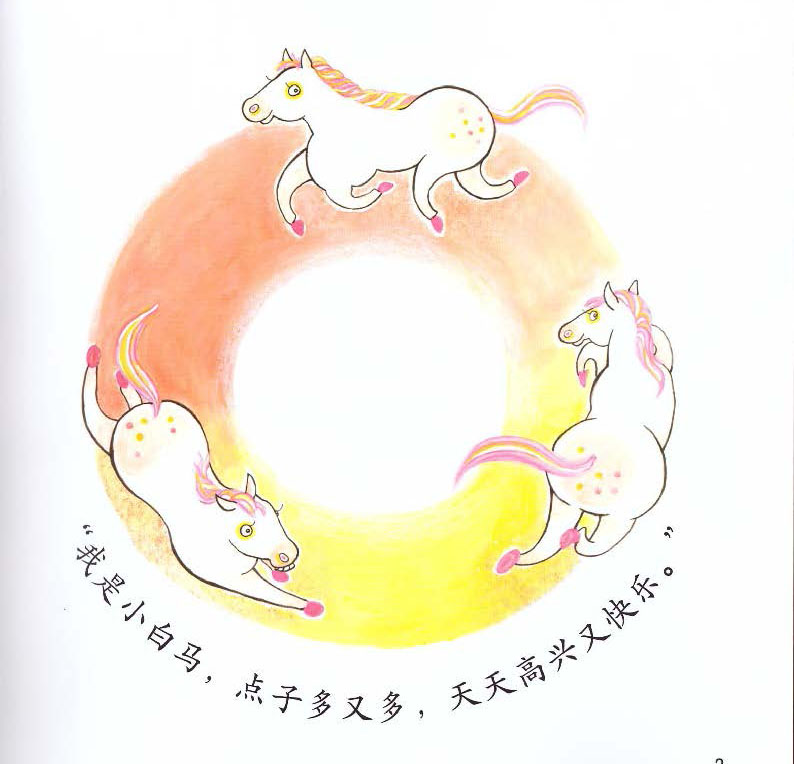 “我是小白马，点子多又多，天天高兴又快乐。”